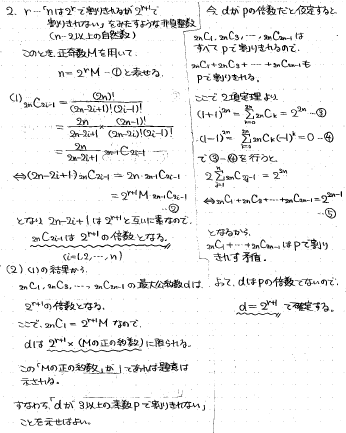 2. r…「nは2^rで割りきれるが2^{r+1}で
割りきれない」をみたすような非負整数
このとき、正奇数Mを用いて、
n=2^r M －① と表せる.
(1) 2nC2i-1 = (2n)! / (2n-2i+1)!(2i-1)!
= 2n/(2n-2i+1) × (2n-1)!/(2n-2i)!(2i-1)!
= 2n/(2n-2i+1) 2n-1C2i-1
⇔(2n-2i+1) 2nC2i-1 = 2n・2n-1C2i-1
= 2^{r+1} M 2n-1C2i-1
②
となり 2n-2i+1 は 2^{r+1} と互いに素なので、
2nC2i-1 は 2^{r+1} の倍数となる.
(i=1,2,…,n)
(2) (1)の結果から
2nC1, 2nC3, …, 2nC2n-1 の最大公約数dは.
2^{r+1}の倍数となる.
ここで、2nC1 = 2^{r+1}M なので、
dは 2^{r+1}×(Mの正の約数)に限られる.
この「Mの正の約数」が1であれば題意は
示される.
すなわち「dが3以上の素数Pで割りきれない」
ことを示せばよい.
今、dがPの倍数だと仮定すると
2nC1, 2nC3, …, 2nC2n-1 は
すべてPで割りきれるので、
2nC1 + 2nC3 + … + 2nC2n-1 も
Pで割りきれる.
ここで2項定理より
(1+1)^{2n} = Σ_{k=0}^{2n} 2nCk = 2^{2n} －③
(1-1)^{2n} = Σ_{k=0}^{2n} 2nCk(-1)^k = 0 －④
で③-④を行うと
2 Σ_{j=1}^{n} 2nC2j-1 = 2^{2n}
⇔ 2nC1 + 2nC3 + … + 2nC2n-1 = 2^{2n-1}
⑤
となるから、
2nC1 + … + 2nC2n-1 はPで割り
きれず矛盾.
よって、dはPの倍数でないので、
d = 2^{r+1} で確定する.